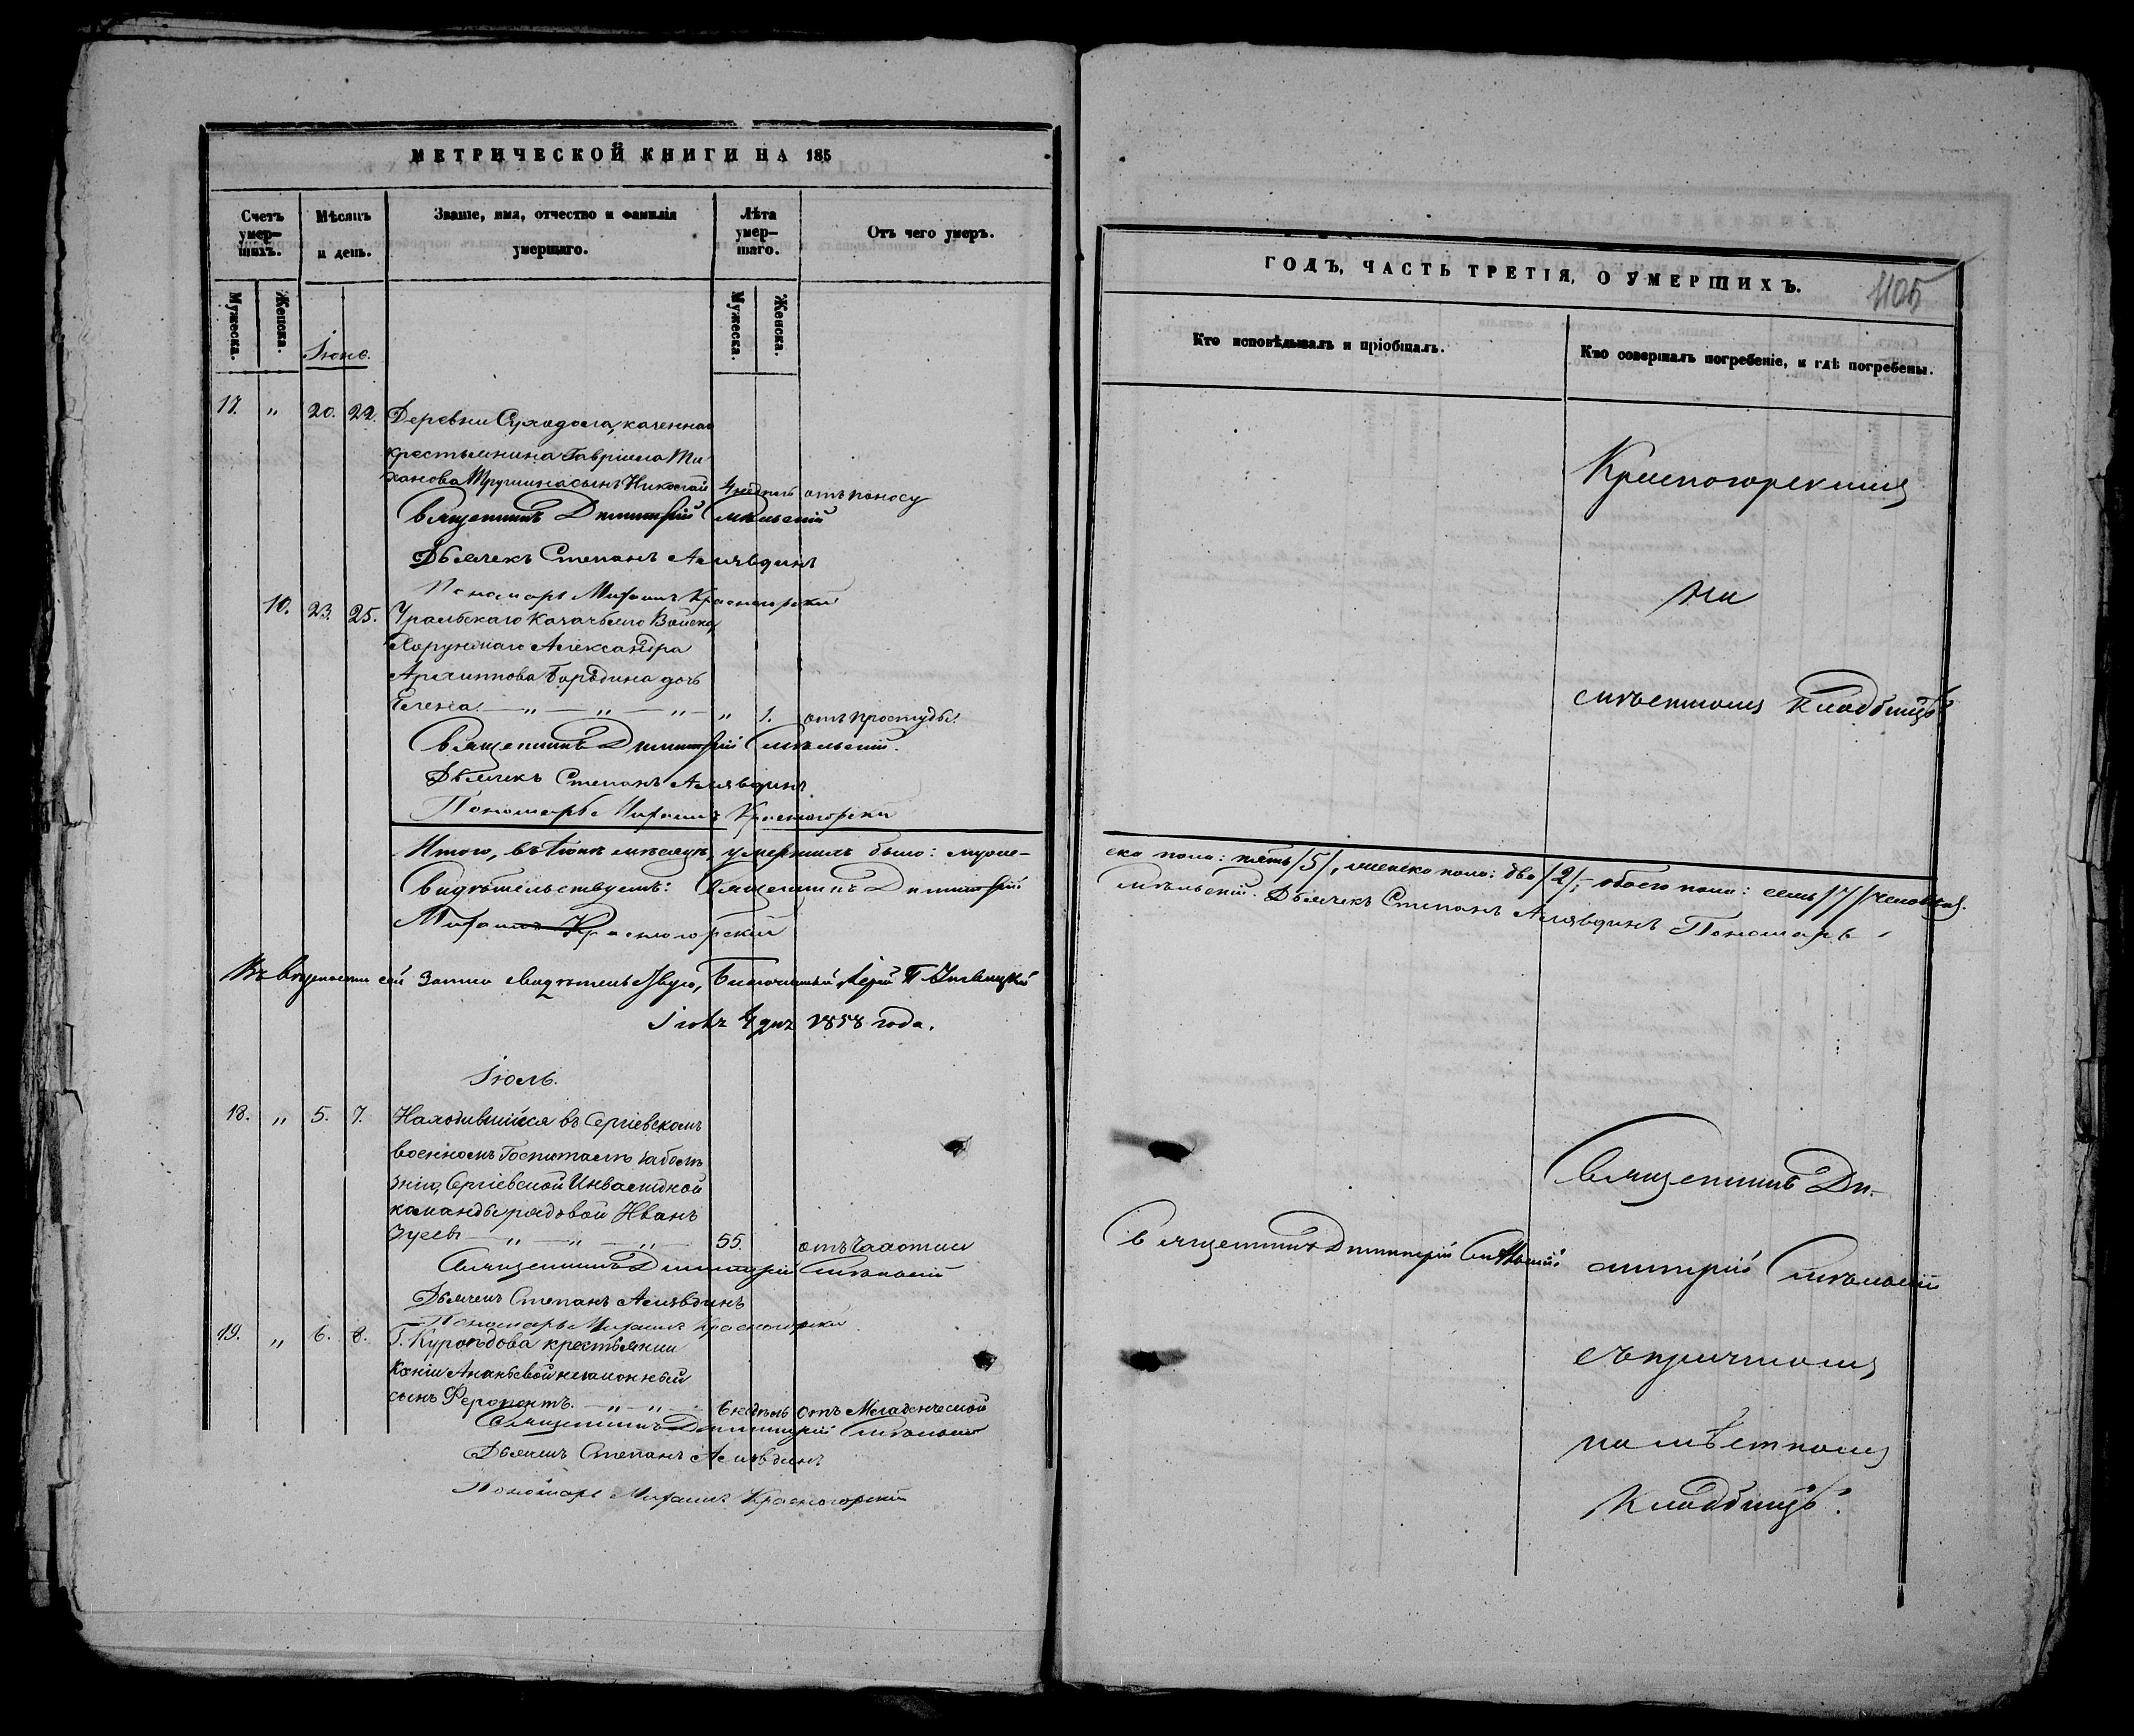 МЕТРИЧЕСКОЙ КНИГИ НА 185
Счетъ умер-шихъ.
Мѣсяцъ и день.
Званіе, имя, отчество и фамилія умершаго.
Лѣта умер-шаго.
Отъ чего умеръ.
Мужеска.
Женска.
Мужеска.
Женска.
Іюнь.
17. „ 20. 22. Деревни Суходола, казеннаго
крестьянина Гавріила
сынъ Николай 4 недѣль отъ поносу
Священникъ Димитрій Смѣльскій
Дьячекъ Степанъ Алявдинъ
Пономарь Михаилъ Красногорскій
10. 23. 25. Уральскаго Казачьяго Войска,
Хорунжаго Александра
Архиппова Бородина дочь
Елена. — „ — „ — „ — „ 1. отъ простуды.
Священникъ Димитрій Смѣльскій.
Дьячекъ Степанъ Алявдинъ
Пономарь Михаилъ Красногорскій
Итого, въ Іюнѣ мѣсяцѣ, умершихъ было: муже-
свидѣтельствуетъ: Священникъ Димитрій
Михаилъ Красногорскій
Въ вѣрности сей записи свидѣтельствую, Благочинный Іерей П.
4 дня 1858 года.
Іюль.
18. „ 5. 7. Находившійся въ Сергіевскомъ
военномъ Госпиталѣ за болѣ
знію, Сергіевской Инвалидной
команды рядовой Иванъ
Зуевъ — „ — „ — „ — 55. отъ чахотки
Священникъ Димитрій Смѣльскій
Дьячекъ Степанъ Алявдинъ
Пономарь Михаилъ Красногорскій
19. „ 6. 8. Г. Куроѣдова крестьянки
Ксеніи Ананьевой незаконный
сынъ Ферапонтъ. — „ — „ — 6 недѣль отъ Младенческой
Священникъ Димитрій Смѣльскій
Дьячекъ Степанъ Алявдинъ
Пономарь Михаилъ Красногорскій
ГОДЪ, ЧАСТЬ ТРЕТІЯ, О УМЕРШИХЪ.
1105
Кто исповѣдывалъ и пріобщалъ.
Кто совершалъ погребеніе, и гдѣ погребены.
на
мѣстномъ кладбищѣ
ска пола: пять /5/, женска пола: два /2/, обоего пола: семь /7/ человѣкъ.
Смѣльскій. Дьячекъ Степанъ Алявдинъ Пономарь
Священникъ Ди-
Священникъ Димитрій Смѣльскій
митрій Смѣльскій
съ причтомъ
на мѣстномъ
кладбищѣ.